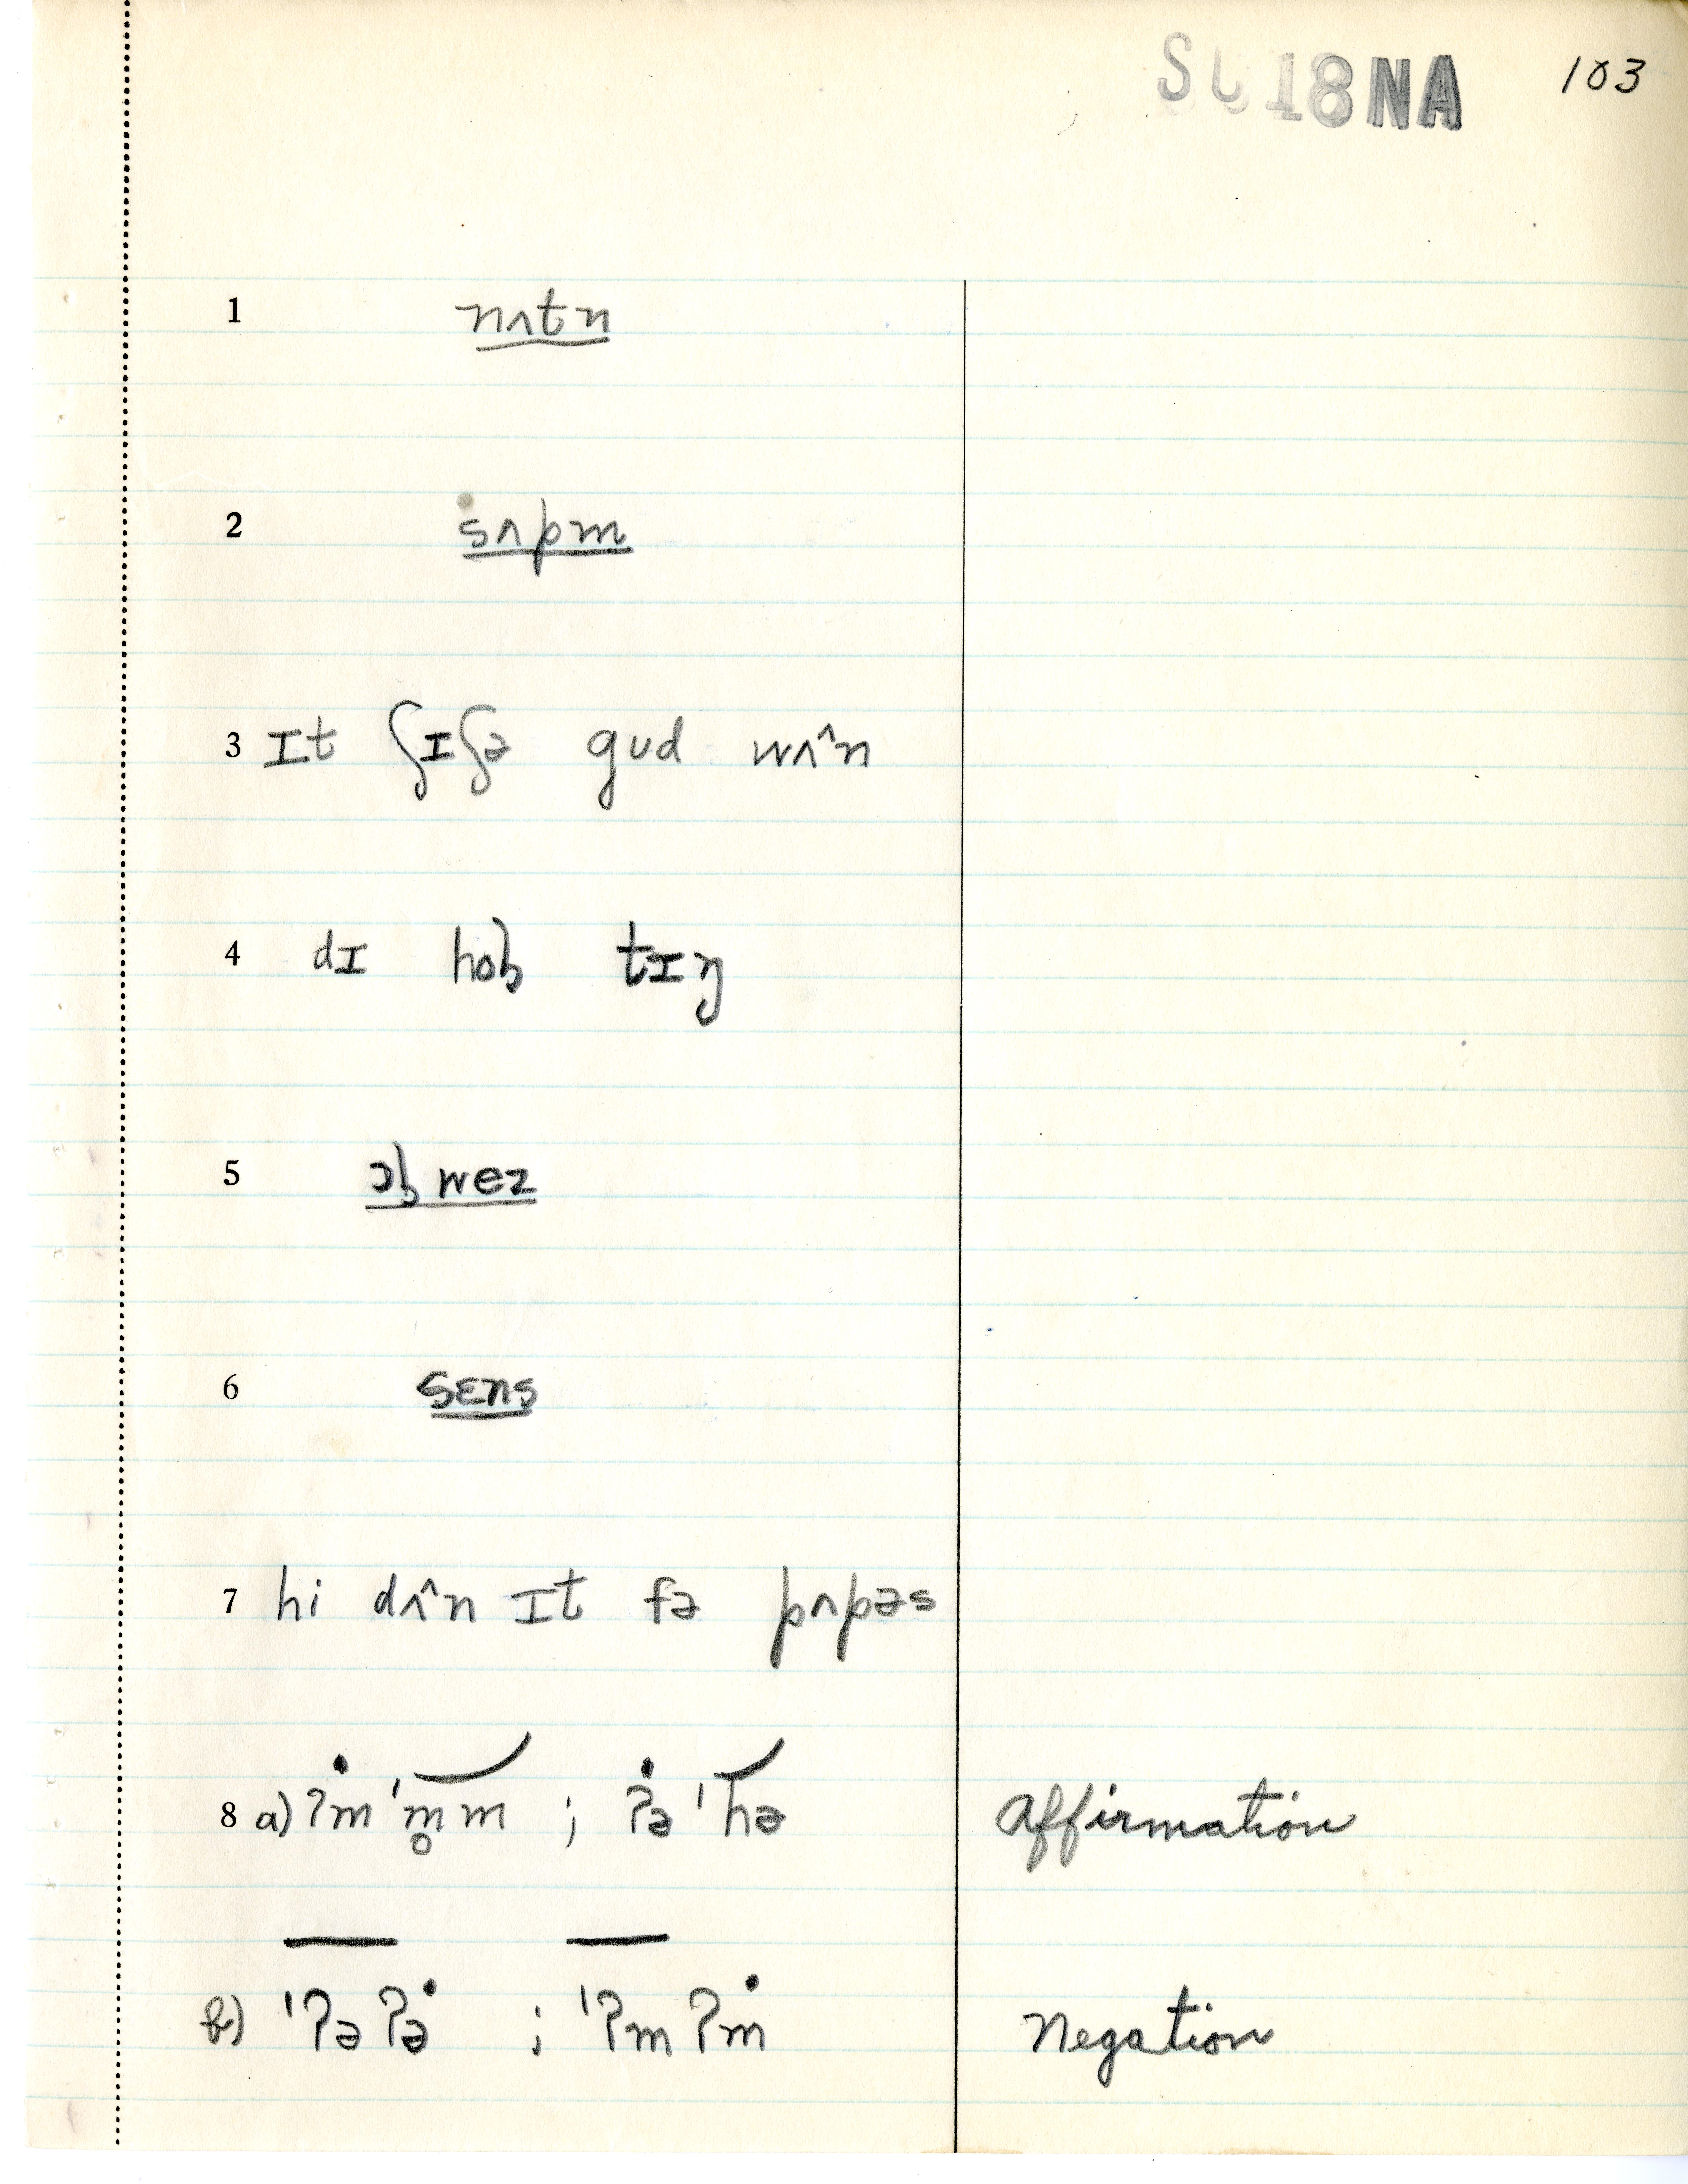 SC 18NA 103
1 nʌtn
2 sʌpm
3 ɪt ʃɪʃə gud wʌ^n
4 dɪ hol̥ tɪŋ
5 ɔl̥wez
6 sɛns
7 hi dʌ^n ɪt fə pʌpəs
8 a) ʔm ˈm̥m ; ʔə ˈhə affirmation
b) ˈʔəʔə ; ˈʔmʔm negation